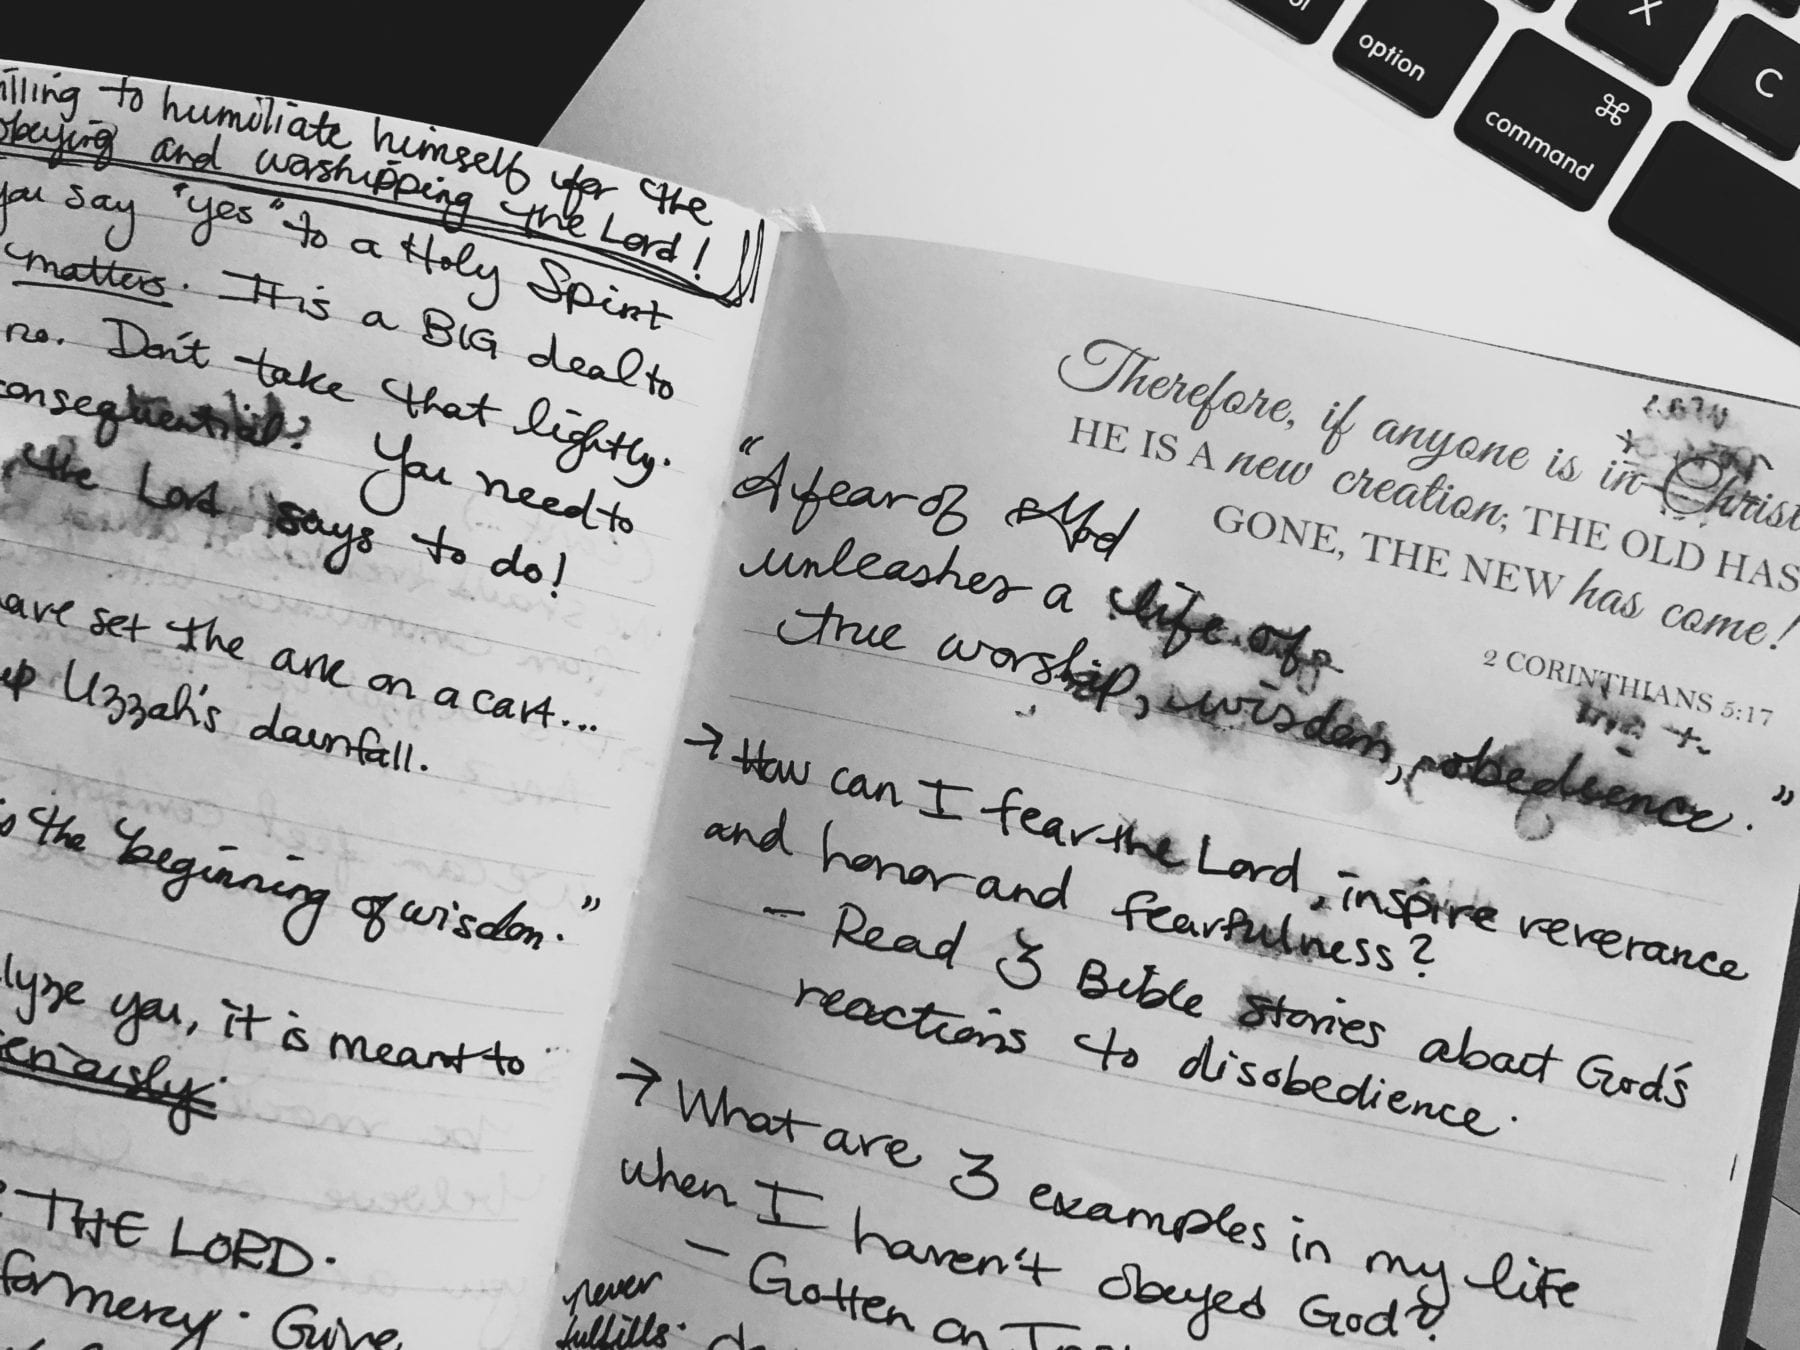 option
X
C
⌘
command
to humiliate himself for the
obeying and worshipping the Lord!
you say "yes" to a Holy Spirit
matters. It is a BIG deal to
no. Don't take that lightly.
consequential? You need to
the Lord says to do!
set the ark on a cart...
up Uzzah's downfall.
the beginning of wisdom."
you, it is meant to
THE LORD.
for mercy. Give
Therefore, if anyone is in Christ
HE IS A new creation; THE OLD HAS
GONE, THE NEW has come!
2 CORINTHIANS 5:17
"A fear of God
unleashes a life of
true worship, wisdom, obedience."
→ How can I fear the Lord, inspire reverance
and honor and fearfulness?
- Read 3 Bible stories about God's
reactions to disobedience.
→ What are 3 examples in my life
when I haven't obeyed God?
- Gotten on
never
fulfills.